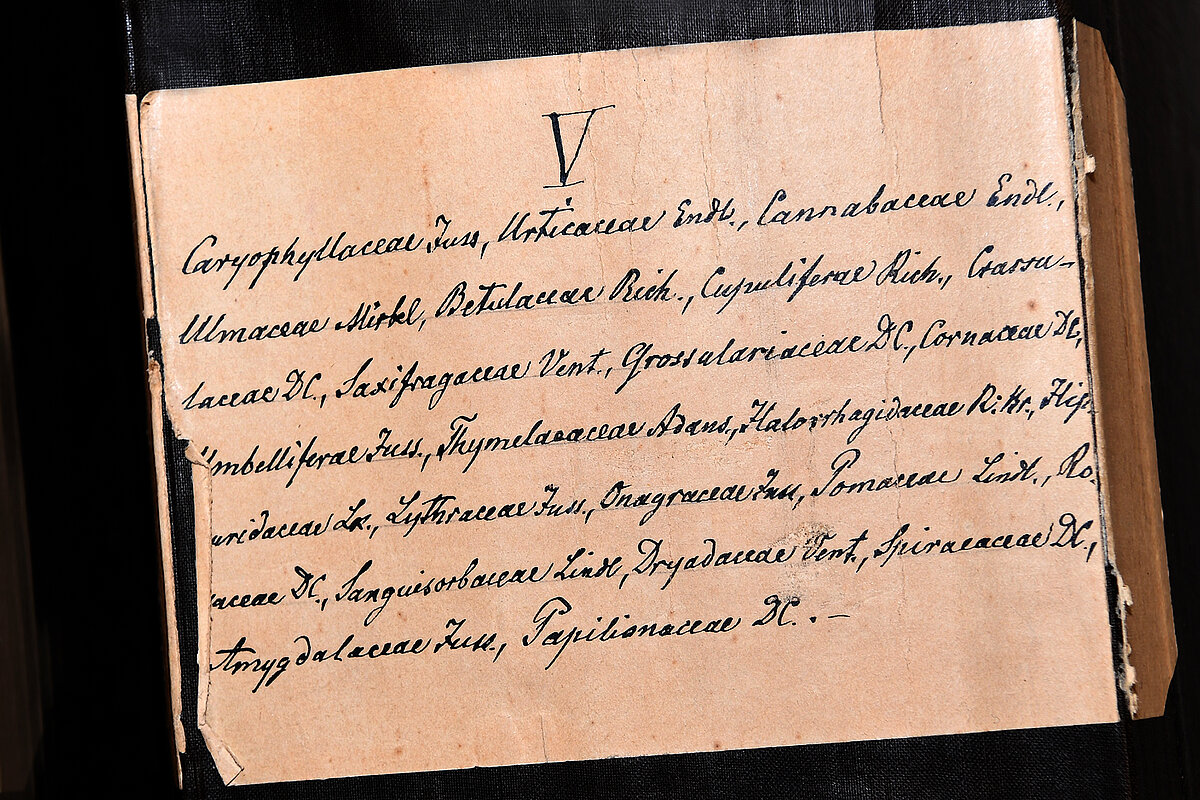 V
Caryophyllaceae Juss, Urticaceae Endl., Cannabaceae Endl.,
Ulmaceae Mirbel, Betulaceae Rich., Cupuliferae Rich., Crassu-
laceae DC., Saxifragaceae Vent., Grossulariaceae DC., Cornaceae DC,
Umbelliferae Juss., Thymelaeaceae Adans., Halorrhagidaceae R. Br., Hip-
uridaceae Lk., Lythraceae Juss., Onagraceae Juss, Pomaceae Lindl., Ro-
aceae DC., Sanguisorbaceae Lindl, Dryadaceae Vent., Spiraeaceae DC.,
Amygdalaceae Juss., Papilionaceae DC. . —